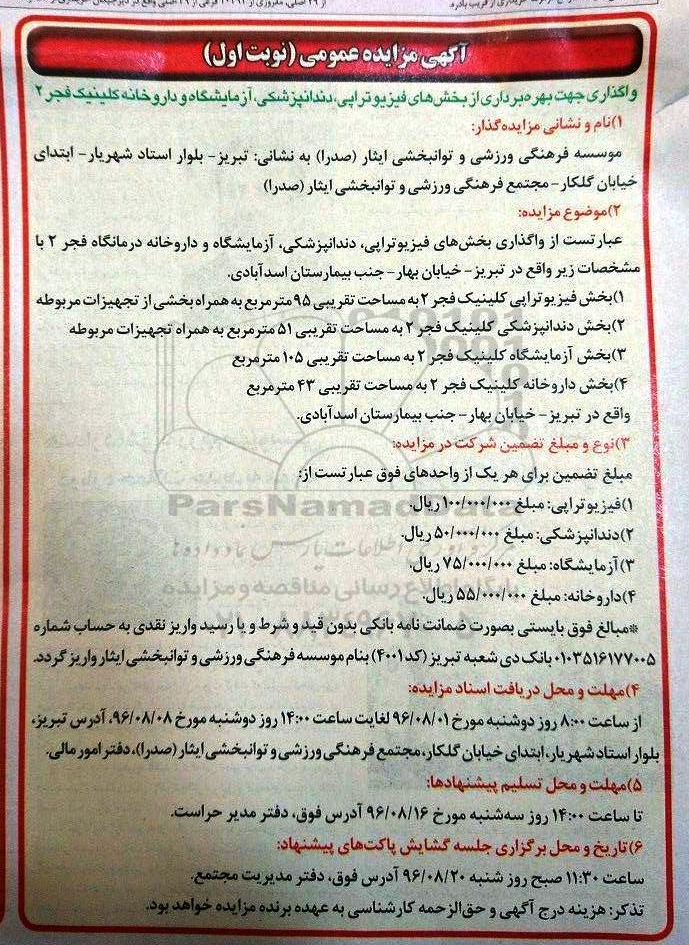 آگهی مزایده عمومی (نوبت اول)
واگذاری جهت بهره‌برداری از بخش‌های فیزیوتراپی، دندانپزشکی، آزمایشگاه و داروخانه کلینیک فجر ۲
۱)نام و نشانی مزایده‌گذار:
موسسه فرهنگی ورزشی و توانبخشی ایثار (صدرا) به نشانی: تبریز- بلوار استاد شهریار- ابتدای
خیابان گلکار- مجتمع فرهنگی ورزشی و توانبخشی ایثار (صدرا)
۲)موضوع مزایده:
عبارتست از واگذاری بخش‌های فیزیوتراپی، دندانپزشکی، آزمایشگاه و داروخانه درمانگاه فجر ۲ با
مشخصات زیر واقع در تبریز- خیابان بهار- جنب بیمارستان اسدآبادی.
۱)بخش فیزیوتراپی کلینیک فجر ۲ به مساحت تقریبی ۹۵ مترمربع به همراه بخشی از تجهیزات مربوطه
۲)بخش دندانپزشکی کلینیک فجر ۲ به مساحت تقریبی ۵۱ مترمربع به همراه تجهیزات مربوطه
۳)بخش آزمایشگاه کلینیک فجر ۲ به مساحت تقریبی ۱۰۵ مترمربع
۴)بخش داروخانه کلینیک فجر ۲ به مساحت تقریبی ۴۳ مترمربع
واقع در تبریز- خیابان بهار- جنب بیمارستان اسدآبادی.
۳)نوع و مبلغ تضمین شرکت در مزایده:
مبلغ تضمین برای هر یک از واحدهای فوق عبارتست از:
ParsNamadData
۱)فیزیوتراپی: مبلغ ۱۰۰/۰۰۰/۰۰۰ ریال.
۲)دندانپزشکی: مبلغ ۵۰/۰۰۰/۰۰۰ ریال.
۳)آزمایشگاه: مبلغ ۷۵/۰۰۰/۰۰۰ ریال.
پایگاه اطلاع رسانی مناقصه و مزایده
۴)داروخانه: مبلغ ۵۵/۰۰۰/۰۰۰ ریال.
*مبالغ فوق بایستی بصورت ضمانت نامه بانکی بدون قید و شرط و یا رسید واریز نقدی به حساب شماره
۰۱۰۳۵۱۶۱۷۷۰۰۵ بانک دی شعبه تبریز (کد ۴۰۰۱) بنام موسسه فرهنگی ورزشی و توانبخشی ایثار واریز گردد.
۴)مهلت و محل دریافت اسناد مزایده:
از ساعت ۸:۰۰ روز دوشنبه مورخ ۹۶/۰۸/۰۱ لغایت ساعت ۱۴:۰۰ روز دوشنبه مورخ ۹۶/۰۸/۰۸، آدرس تبریز،
بلوار استاد شهریار، ابتدای خیابان گلکار، مجتمع فرهنگی ورزشی و توانبخشی ایثار (صدرا)، دفتر امور مالی.
۵)مهلت و محل تسلیم پیشنهادها:
تا ساعت ۱۴:۰۰ روز سه‌شنبه مورخ ۹۶/۰۸/۱۶ آدرس فوق، دفتر مدیر حراست.
۶)تاریخ و محل برگزاری جلسه گشایش پاکت‌های پیشنهاد:
ساعت ۱۱:۳۰ صبح روز شنبه ۹۶/۰۸/۲۰ آدرس فوق، دفتر مدیریت مجتمع.
تذکر: هزینه درج آگهی و حق‌الزحمه کارشناسی به عهده برنده مزایده خواهد بود.